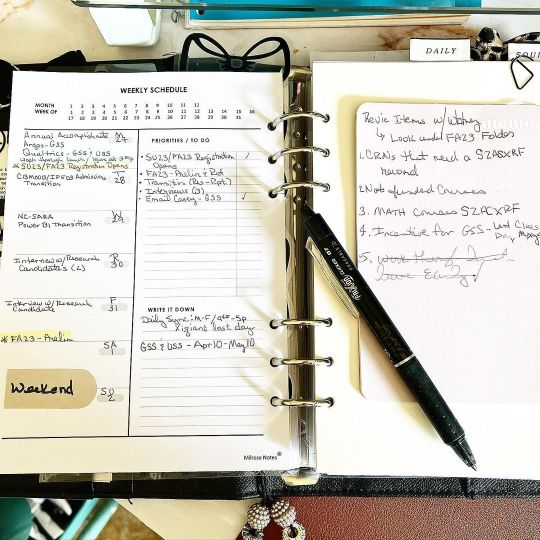 WEEKLY SCHEDULE
MONTH 1 2 3 4 5 6 7 8 9 10 11 12
WEEK OF 1 2 3 4 5 6 7 8 9 10 11 12 13 14 15 16
17 18 19 20 21 22 23 24 25 26 27 28 29 30 31
Annual Accomplishments
Argos-GSS
Qualtrics-GSS & USS
* SU23/FA23 Registration Opens
CBM00B/IPEDS Admissions
Transition
T
28
NC-SARA
Power BI Transition
Interview w/Research
Candidate's (2)
R
30
Interview w/Research
Candidate
F
31
* FA23-Prelim
SA
Weekend
SU
2
PRIORITIES / TO DO
• SU23/FA23 Registration
Opens
• FA23-Prelim & Rpt
• Transition (Res-Rpts)
• Interviews (3)
• Email Casey-GSS
WRITE IT DOWN
Daily Sync: M-F/
last day
GSS & USS - Apr 10-May 10
Milrose Notes®
DAILY
Revie Items w/
↳ Look under FA23 Folder
1. CRNs that need a SZASXRF
record
2. Not funded Courses
3. MATH Courses SZACXRF
4. Incentive for GSS-Last Class
Day
5. Work
Leave Early!